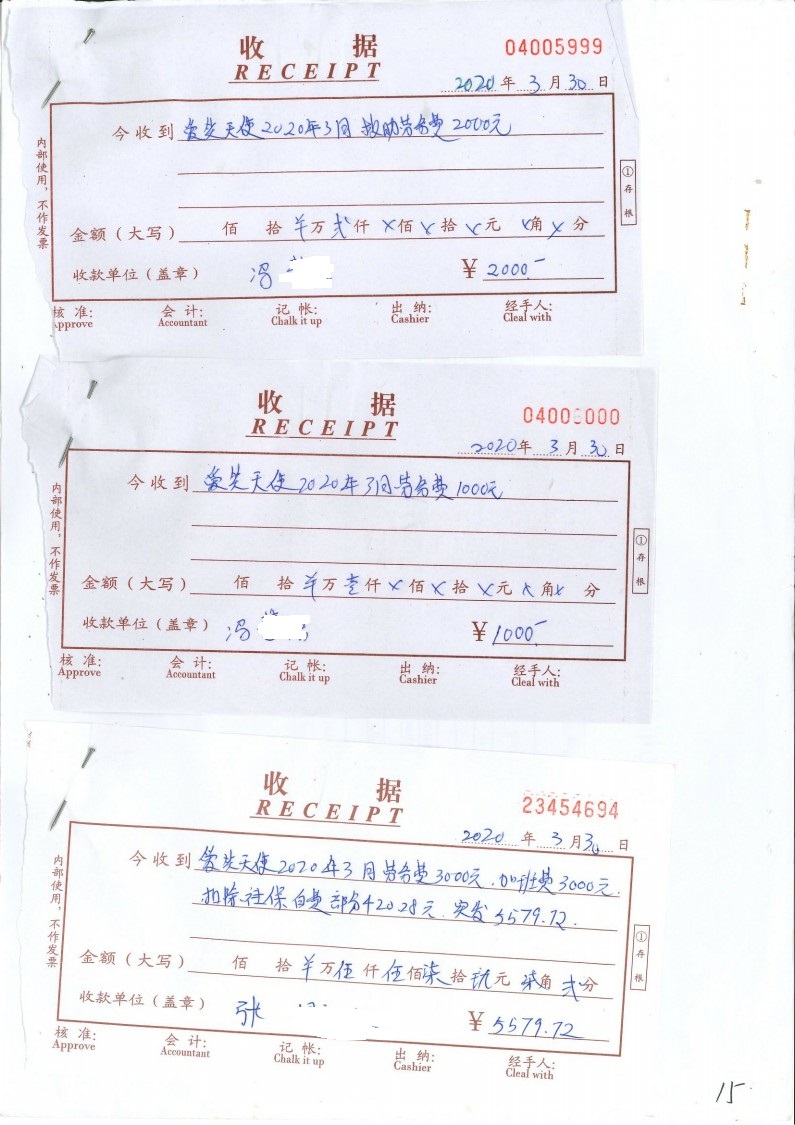 收 据
RECEIPT
04005999
2020 年 3 月 30 日
今收到 爱英天使2020年3月 救助劳务费2000元
内部使用，不作发票
①存根
金额（大写） 佰 拾 羊万 贰 仟 × 佰 × 拾 × 元 × 角 × 分
收款单位（盖章） 冯 ¥ 2000.-
核 准: 会 计: 记 帐: 出 纳: 经手人:
Approve Accountant Chalk it up Cashier Cleal with
收 据
RECEIPT
2020 年 3 月 30 日
今收到 爱英天使2020年3月劳务费1000元
内部使用，不作发票
①存根
金额（大写） 佰 拾 羊万 壹 仟 × 佰 × 拾 × 元 × 角 × 分
收款单位（盖章） 冯 ¥ 1000.-
核 准: 会 计: 记 帐: 出 纳: 经手人:
Approve Accountant Chalk it up Cashier Cleal with
收 据
RECEIPT
23454694
2020 年 3 月 30 日
今收到 爱英天使2020年3月劳务费3000元.加班费3000元.
扣除社保自费部分420.28元.实发5579.72.
内部使用，不作发票
①存根
金额（大写） 佰 拾 羊万 伍 仟 伍 佰 柒 拾 玖 元 柒 角 贰 分
收款单位（盖章） 张 ¥ 5579.72
核 准: 会 计: 记 帐: 出 纳: 经手人:
Approve Accountant Chalk it up Cashier Cleal with
15